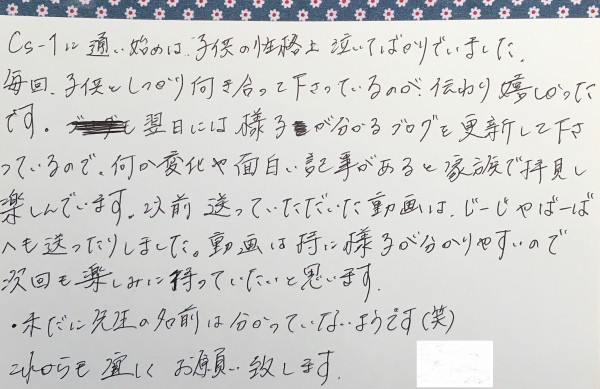 Cs-1に通い始めは、子供の性格上泣いてばかりでいました。
毎回、子供としっかり向き合って下さっているのが、伝わり嬉しかった
です。も翌日には様子が分かるブログを更新して下さ
っているので、何か変化や面白い記事があると家族で拝見し
楽しんでいます。以前送っていただいた動画は、じーじやばーば
へも送ったりしました。動画は特に様子が分かりやすいので
次回も楽しみに待っていたいと思います。
・未だに先生の名前は分かっていないようです(笑)
これからも宜しくお願い致します。